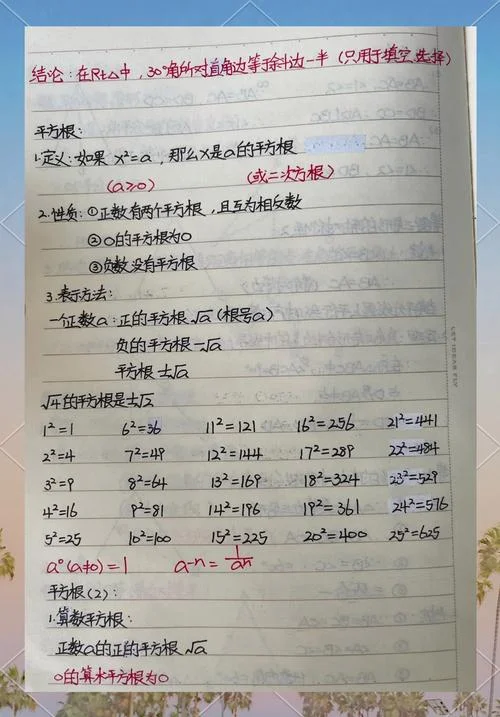 结论:在Rt△中,30°角所对直角边等于斜边一半(只用于填空、选择)
平方根:
1.定义:如果 x²=a,那么x是a的平方根
(a≥0) (或二次方根)
2.性质:①正数有两个平方根,且互为相反数
②0的平方根为0
③负数没有平方根
3.表示方法:
一个正数a:正的平方根√a(根号a)
负的平方根-√a
平方根±√a
√4的平方根是±√2
1²=1 6²=36 11²=121 16²=256 21²=441
2²=4 7²=49 12²=144 17²=289 22²=484
3²=9 8²=64 13²=169 18²=324 23²=529
4²=16 9²=81 14²=196 19²=361 24²=576
5²=25 10²=100 15²=225 20²=400 25²=625
a⁰(a≠0)=1 a-n=1/an
平方根(2):
1.算数平方根:
正数a的正的平方根√a
0的算术平方根为0
LET IDEAS FLY